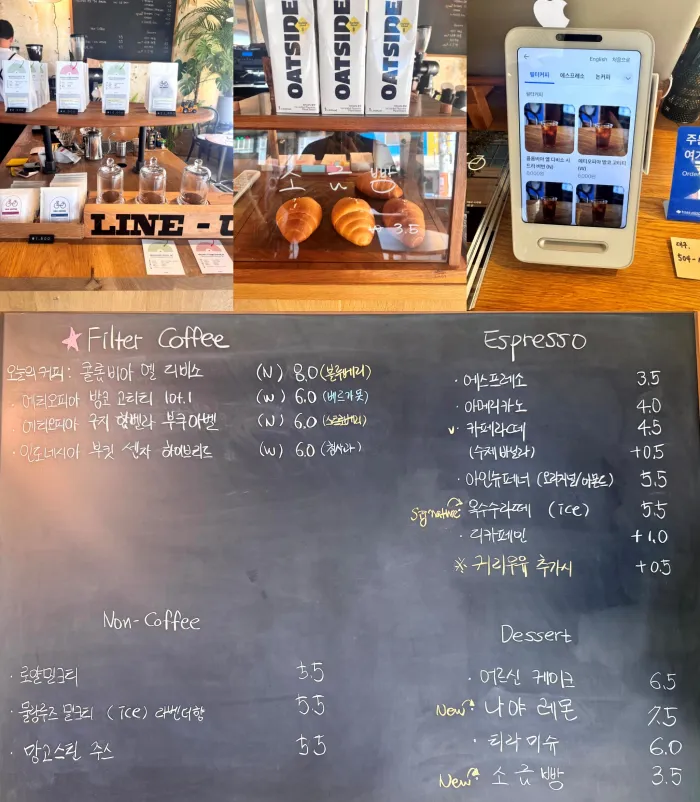 OATSIDE
OATSIDE
OATSIDE
소금빵
₩ 3.5
LINE - U
English
직원호출
필터커피 에스프레소 논커피
필터커피
6,000원
주문
여기
Order
Filter Coffee
오늘의 커피 : 콜롬비아 엘 디비소 (N) 8.0 (블루베리)
· 에티오피아 벙코 고티티 lot.1 (W) 6.0 (베르가못)
에티오피아 구지 함벨라 부쿠아벨 (N) 6.0 (스트로베리)
· 인도네시아 부킷 쎈자 하이브리드 (W) 6.0 (청사과)
Espresso
· 에스프레소 3.5
· 아메리카노 4.0
카페라떼 4.5
(수제 바닐라) +0.5
· 아인슈페너 (오리지널/아몬드) 5.5
Signature 옥수수라떼 (ice) 5.5
· 디카페인 +1.0
※ 귀리우유 추가시 +0.5
Non-Coffee
· 로얄밀크티 5.5
· 물랑루즈 밀크티 (ice) 라벤더향 5.5
· 망고스틴 주스 5.5
Dessert
· 어르신 케이크 6.5
New 나야 레몬 7.5
· 티라미슈 6.0
New 소금빵 3.5